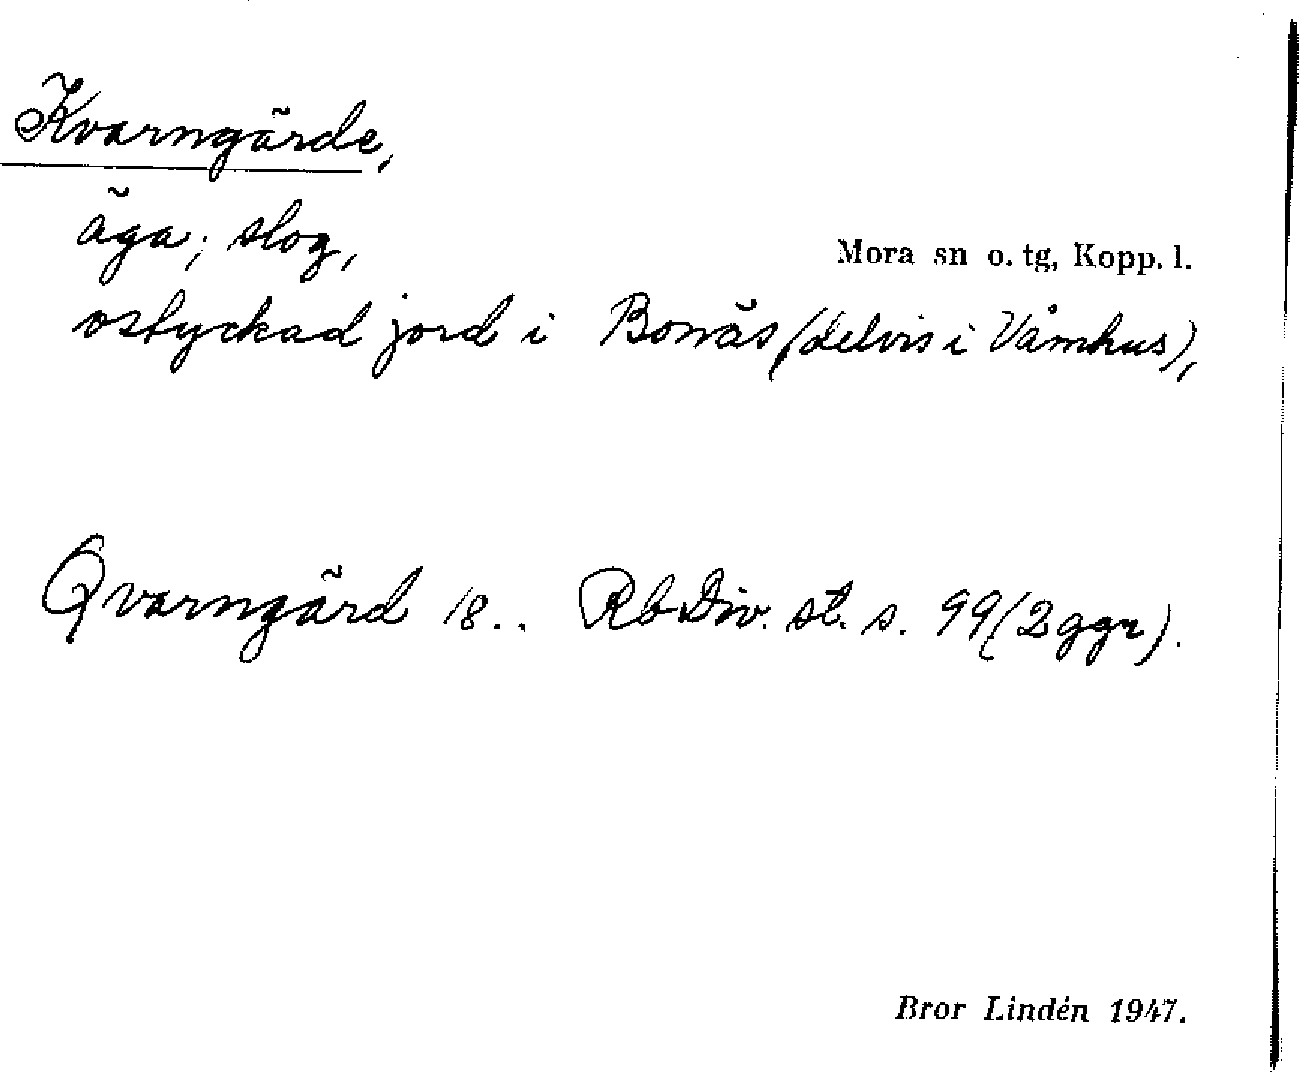 Kvarngärde,
äga; slog,
Mora sn o. tg, Kopp. l.
ostyckad jord i Bonäs (delvis i Våmhus),
Qvarngärd 18.. Rb Div. st. s. 99 (2 ggr).
Bror Lindén 1947.